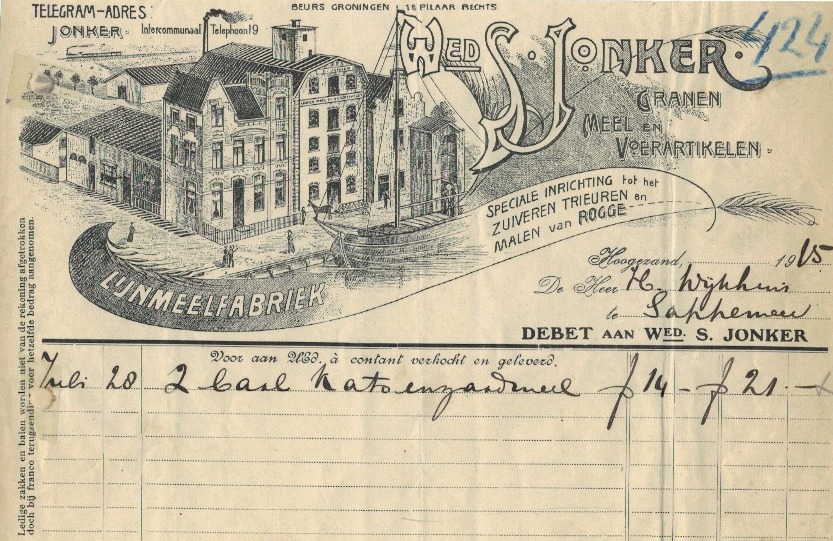 TELEGRAM-ADRES:
JONKER. Intercommunaal Telephoon 19
BEURS GRONINGEN 18 PILAAR RECHTS
424
WED S. JONKER.
GRANEN
MEEL EN
VOERARTIKELEN.
SPECIALE INRICHTING tot het
ZUIVEREN TRIEUREN en
MALEN van ROGGE
LIJNMEELFABRIEK
Hoogezand, 1915
De Heer H. Wijkhuis
te Sappemeer
DEBET AAN WED. S. JONKER
Voor aan UEd. à contant verkocht en geleverd.
Juli 28 2 baal Katoenzaadmeel f 14 - f 21 -
Ledige zakken en balen worden niet van de rekening afgetrokken
doch bij franco terugzending voor hetzelfde bedrag aangenomen.